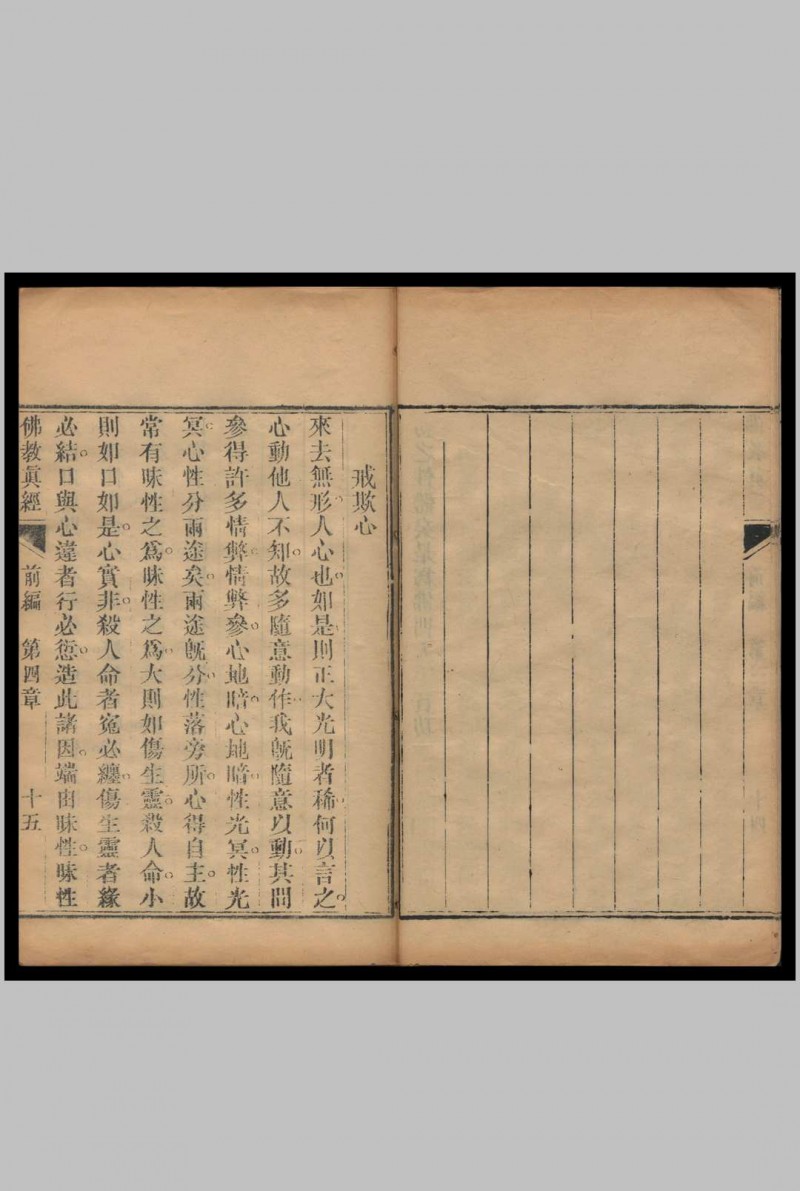 戒欺心
來去無形人心也如是則正大光明者稀何以言之
心動他人不知故多隨意動作我既隨意以動其間
參得許多情弊情弊參心地暗心地暗性光冥性光
冥心性分兩途矣兩途既分性落旁所心得自主故
常有昧性之爲昧性之爲大則如傷生靈殺人命小
則如口如是心實非殺人命者寃必纏傷生靈者緣
必結口與心違者行必愆造此諸因端由昧性昧性
佛教眞經 前編 第四章 十五